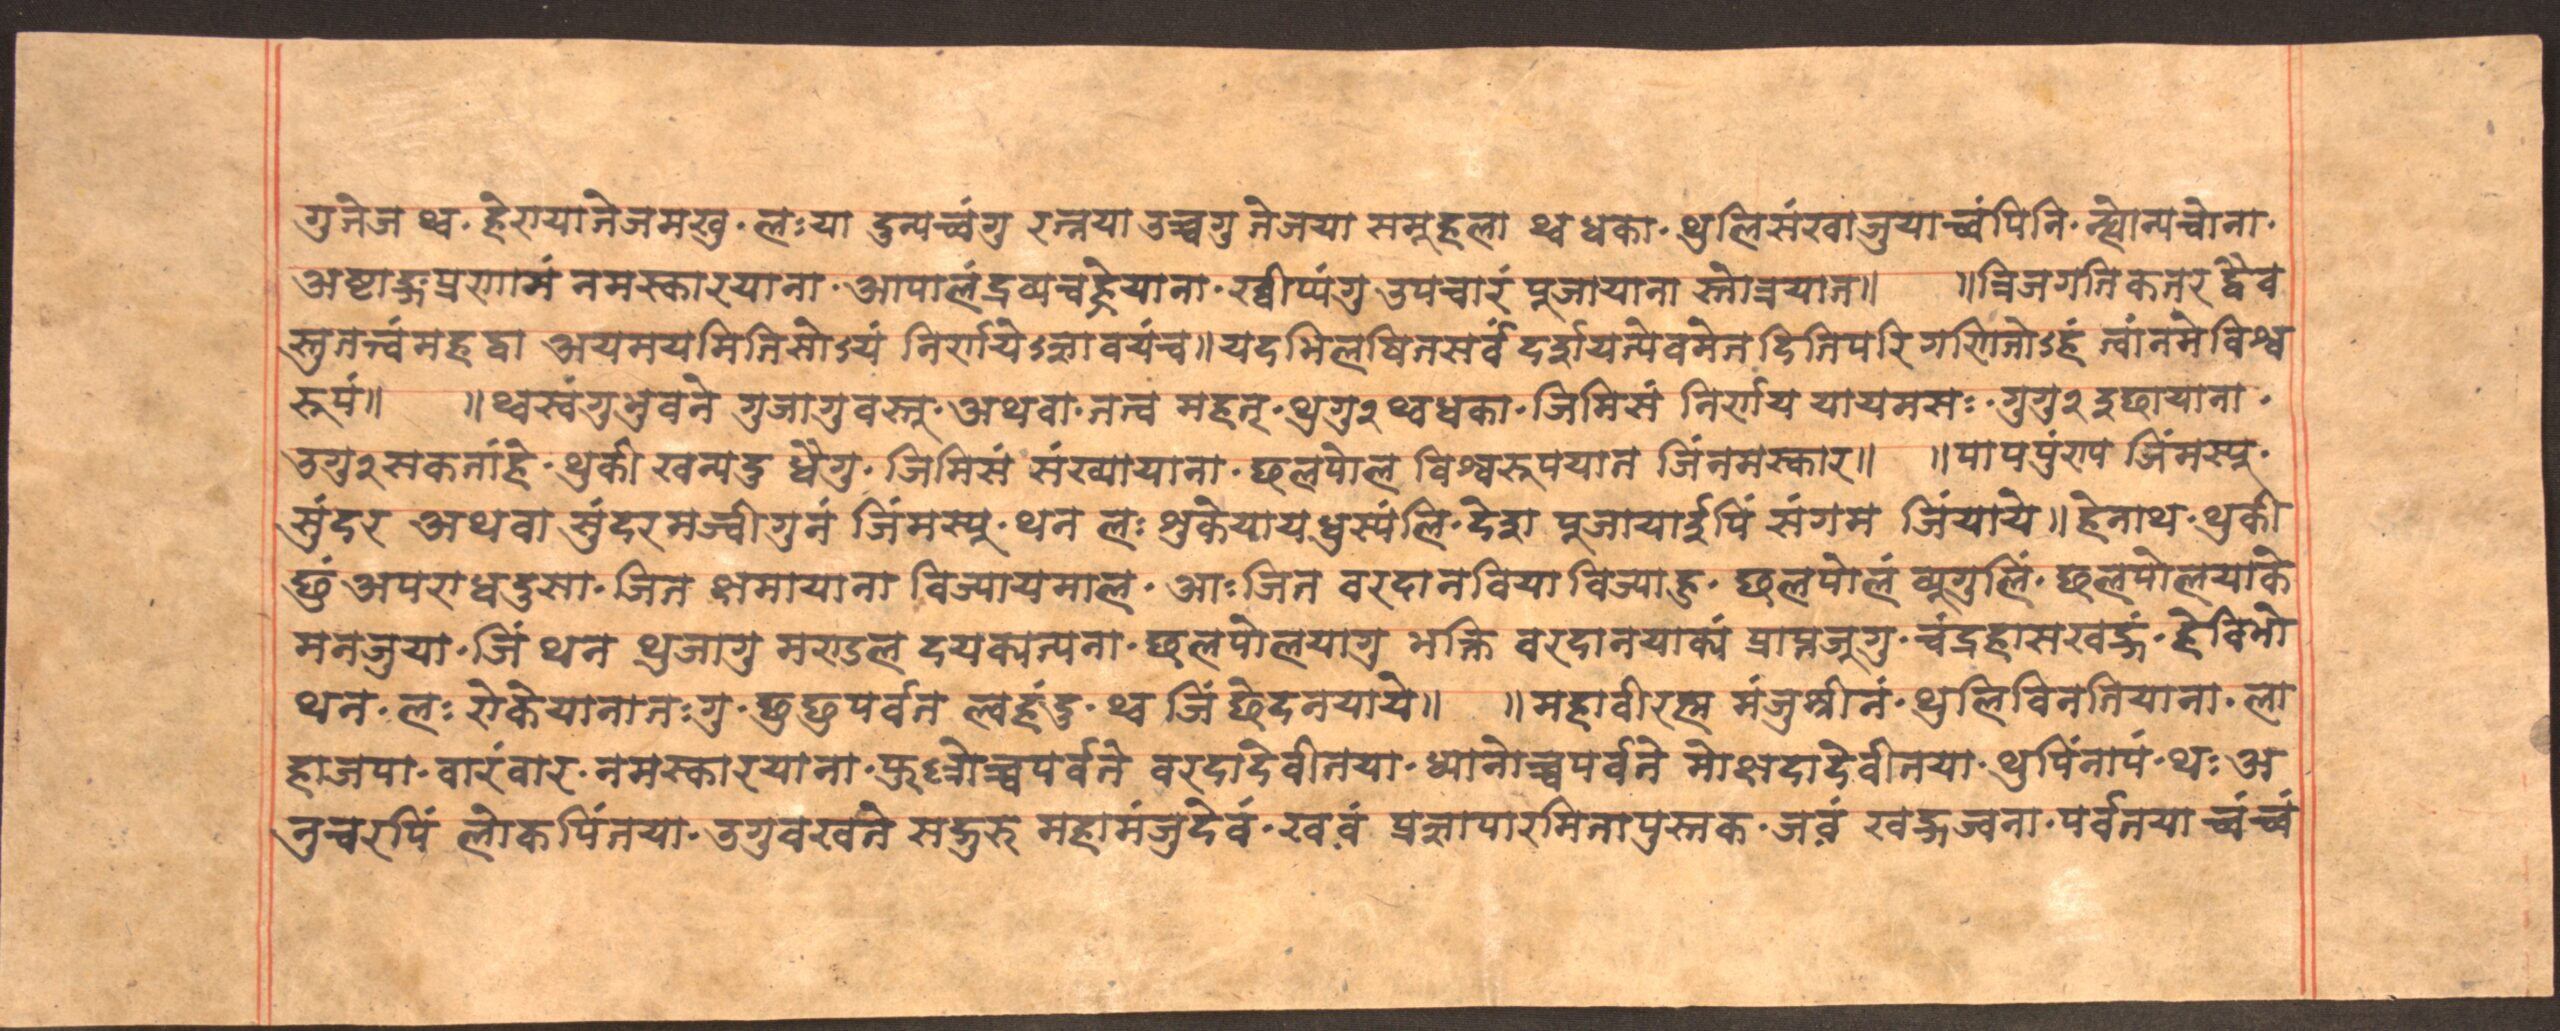 गुतेज थ्व· हेरायातेजमखु· लःया दुन्यच्वंगु रत्नया उच्चगु तेजया समूहला थ्व धका· थुलिसंखाजुयाच्वंपिनि· न्ह्योन्यचोना·
अष्टाङ्गप्रणामं नमस्कारयाना· आपालंद्रव्यन्चह्रेयाना· रव्वीर्प्यंगु उपचारं पूजायाना स्तोत्रयात॥ ॥त्रिजगतिकतरद्वैव
स्तुतत्त्वंमहद्वा अयमयमितिसोऽयं निर्णयेऽज्ञावयंच॥यदभिलषितसर्वं दर्द्दायत्येवमेतदितिपरिगणितोऽहं त्वांनमेविश्व
रूपं॥ ॥थ्वस्वंगुभुवने गुजागुवस्तू· अथवा· तत्व महत्· थुगु२थ्वधका· जिमिसं निर्णय यायमसः· गुगु२इछायाना·
उगु२सकतांहे· थुकी खन्यदु धैगु· जिमिसं संख्यायाना· छलपोल विश्वरूपयात जिंनमस्कार॥ ॥पापपुंराप जिंमस्यू·
सुंदर अथवा सुंदरमज्वीगुनं जिंमस्यू· थन लः शुकेयायधुस्यंलि· देरा पूजायार्इपिं संगम जिंयाये॥हेनाथ· थुकी
छुं अपराधदुसा· जित क्षमायाना विज्यायमाल· आःजित वरदानवियाविज्याहु· छलपोलं व्यूगुलिं· छलपोलयाके
मनजुया· जिं थन थुजागु मराडल दयकात्यना· छलपोलयागु भक्ति वरदानयाक्यं प्राप्तजूगु· चंद्रहासखड्गं· हेविभो
थन· लः रोकेयानातःगु· छुछुपर्वत ल्वहंदु· थ्व जिं छेदनयाये॥ ॥महावीरह्म मंजुश्रीनं· थुलिविनतियाना· ला
हाजपा· वारंवार· नमस्कारयाना· फुल्लोच्चपर्वते वरदादेवीतया· ध्यानोच्चपर्वते मोक्षदादेवीतया· थुपिंनापं· थःअ
नुचरपिं लोकपिंतया· उगुवखते सद्गुरु महामंजुदेवं· खवं प्रज्ञापारमितापुस्तक· जवं खड्गज्वना· पर्वतया च्वंच्वं